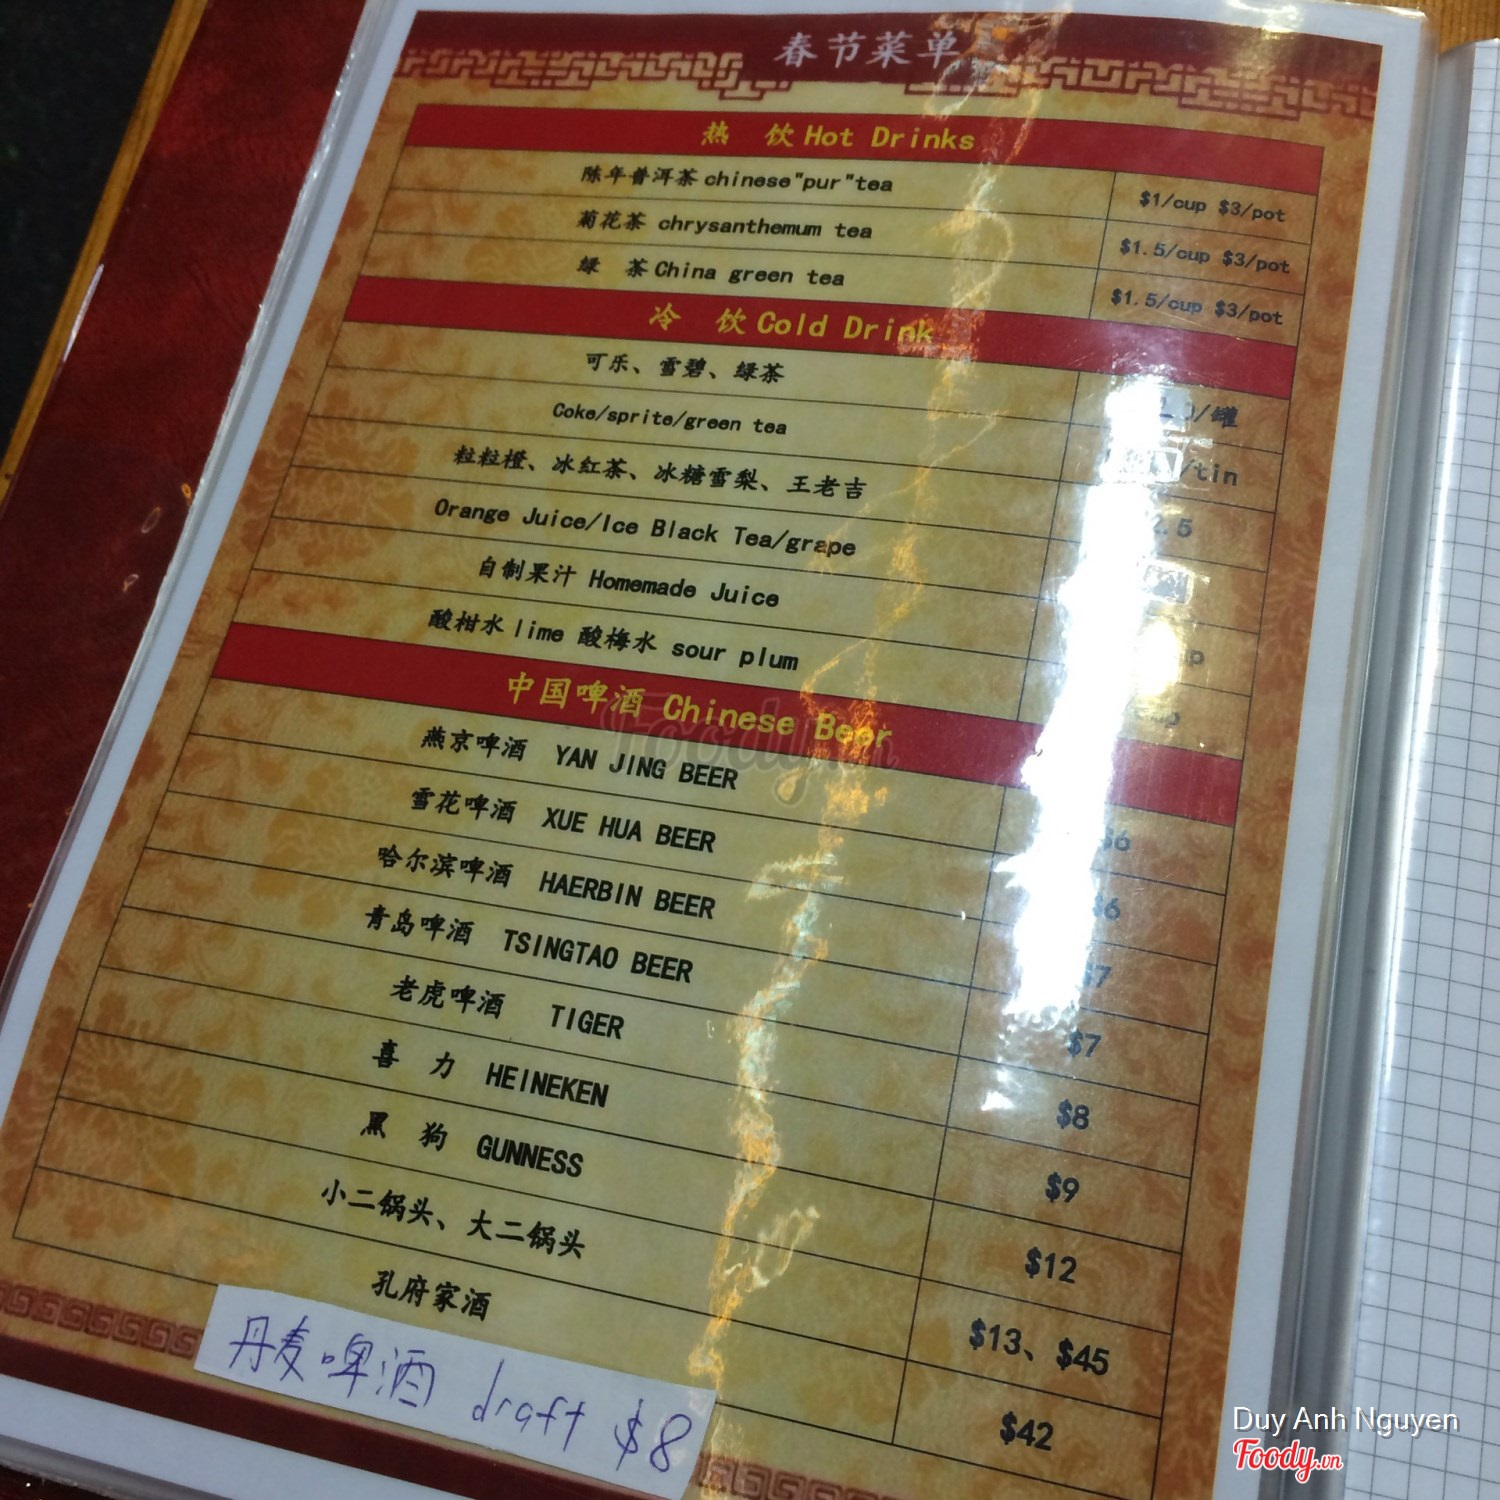 春节菜单
热 饮 Hot Drinks
陈年普洱茶 chinese"pur"tea $1/cup $3/pot
菊花茶 chrysanthemum tea $1.5/cup $3/pot
绿 茶 China green tea $1.5/cup $3/pot
冷 饮 Cold Drink
可乐、雪碧、绿茶 /罐
Coke/sprite/green tea /tin
粒粒橙、冰红茶、冰糖雪梨、王老吉
Orange Juice/Ice Black Tea/grape
自制果汁 Homemade Juice
酸柑水 lime 酸梅水 sour plum
中国啤酒 Chinese Beer
燕京啤酒 YAN JING BEER $6
雪花啤酒 XUE HUA BEER $6
哈尔滨啤酒 HAERBIN BEER $7
青岛啤酒 TSINGTAO BEER $7
老虎啤酒 TIGER $8
喜 力 HEINEKEN $9
黑 狗 GUNNESS $12
小二锅头、大二锅头 $13、$45
孔府家酒 $42
丹麦啤酒 draft $8
Foody.vn
Duy Anh Nguyen
Foody.vn